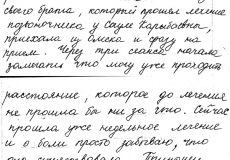 своего брата, который прошел лечение
позвоночника у Сауле Карибаевны,
приехала из Омска и сразу на
прием. Через три сеанса начала
замечать что могу уже проходить
расстояние, которое до лечения
не прошла бы ни за что. Сейчас
прошла уже недельное лечение
и о боли просто забываю, что
она существовала.